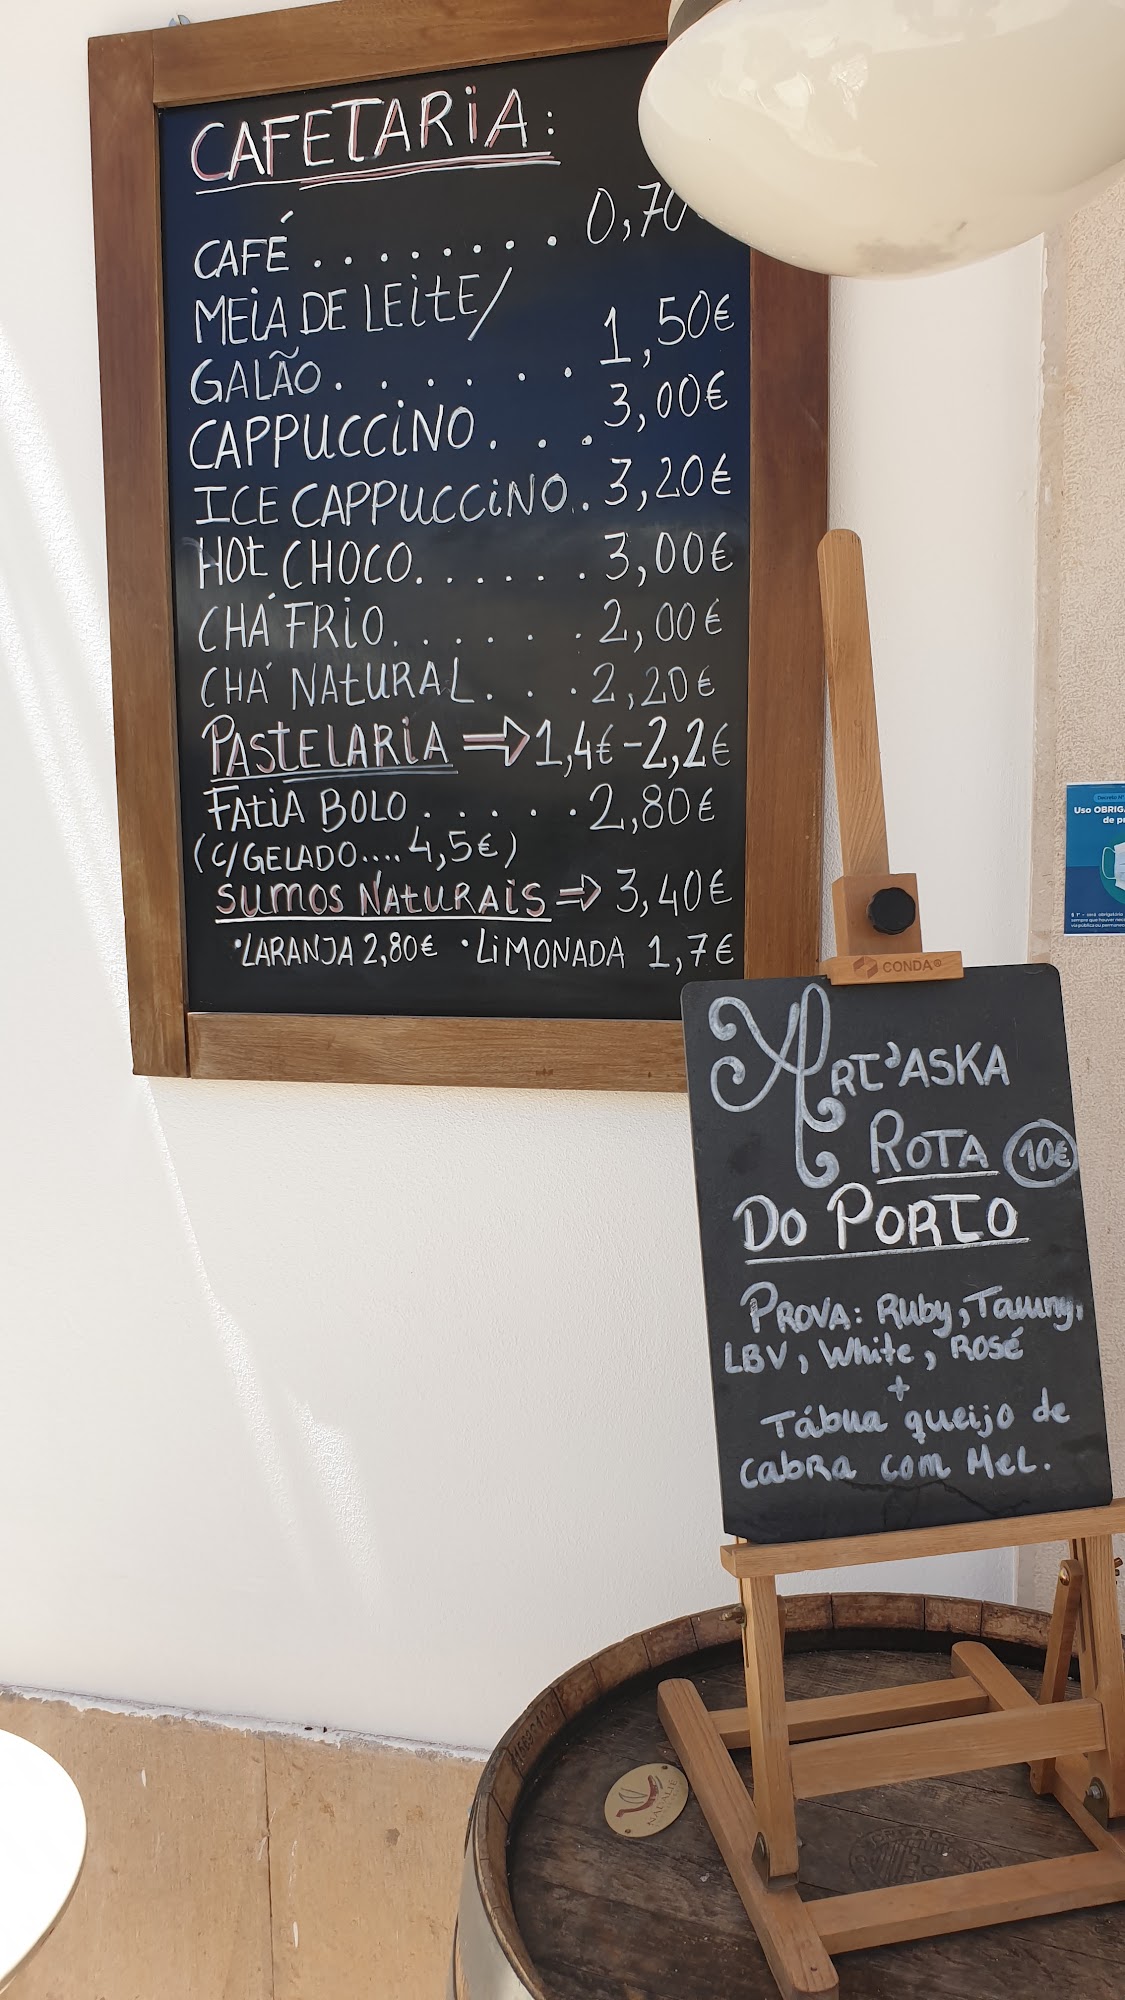 CAFETARIA:
CAFÉ ........ 0,70
MEIA DE LEITE/
GALÃO...... 1,50€
CAPPUCCINO... 3,00€
ICE CAPPUCCINO.. 3,20€
HOT CHOCO...... 3,00€
CHÁ FRIO..... 2,00€
CHÁ NATURAL... 2,20€
PASTELARIA ⇒ 1,4€ - 2,2€
FATIA BOLO ..... 2,80€
(C/GELADO.... 4,5€)
SUMOS NATURAIS ⇒ 3,40€
•LARANJA 2,80€ •LIMONADA 1,7€
CONDA®
ART'ASKA
ROTA 10€
DO PORTO
PROVA: Ruby, Tawny,
LBV, White, ROSÉ
+
Tábua queijo de
cabra com Mel.
Uso OBRIG
de p